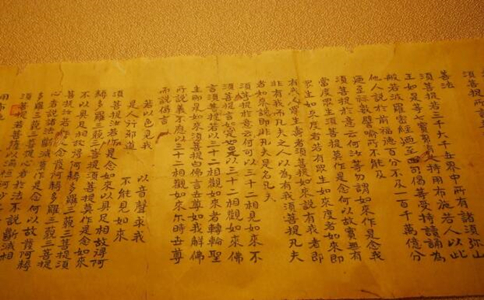 須菩提所言
善法
須菩提若三千大千世界中所有諸須弥山
王如是等七寶聚有人持用布施若人以此
般若波羅蜜經乃至四句偈等受持讀誦為
他人說於前福德百分不及一百千萬億分
乃至筭數譬喻所不能及
須菩提於意云何汝等勿謂如來作是念我
當度眾生須菩提莫作是念何以故實無有
眾生如來度者若有眾生如來度者如來即
有我人眾生壽者須菩提如來說有我者即
非有我而凡夫之人以為有我須菩提凡夫
者如來說即非凡夫是名凡夫
須菩提於意云何可以三十二相觀如來不
須菩提言如是如是以三十二相觀如來佛
言須菩提若以三十二相觀如來者轉輪聖
王即是如來須菩提白佛言世尊如我解佛
所說義不應以三十二相觀如來尒時世尊
而說偈言
若以色見我 以音聲求我
是人行邪道 不能見如來
須菩提汝若作是念如來不以具足相故得阿
耨多羅三藐三菩提須菩提莫作是念如來
不以具足相故得阿耨多羅三藐三菩提
須菩提汝若作是念發阿耨多羅三藐三菩提
心者說諸法斷滅莫作是念何以故發阿耨
多羅三藐三菩提心者於法不說斷滅相